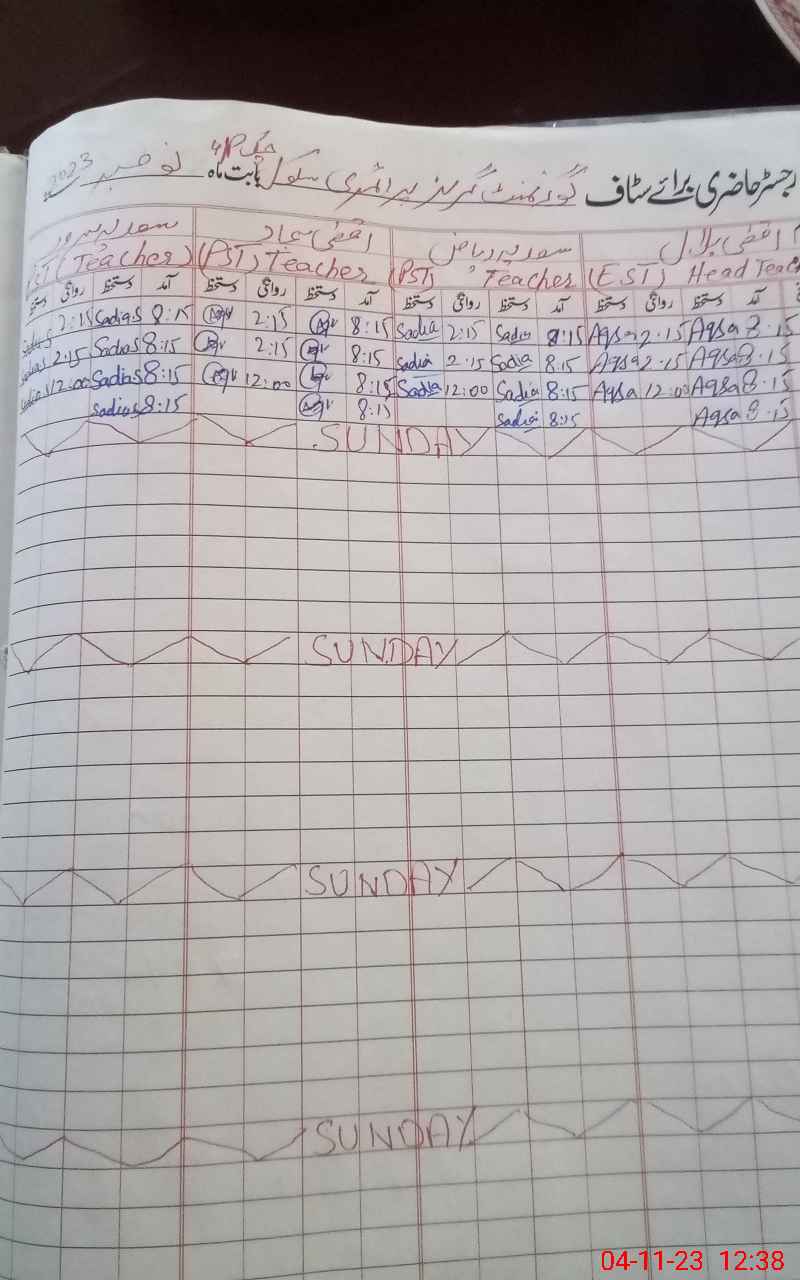 رجسٹر حاضری برائے سٹاف گورنمنٹ گرلز پرائمری سکول چک 4/P بابت ماہ نومبر 2023
اقصٰی بلال سعدیہ ریاض اقصٰی سجاد سعدیہ سرور
(PST) Teacher) (PST) Teacher (PST) Teacher (EST) Head Teac
آمد دستخط روانگی دستخط آمد دستخط روانگی دستخط آمد دستخط روانگی دستخط آمد دستخط روانگی دستخط
SadiaS 2:15 SadiaS 8:15 2:15 8:15 Sadia 2:15 Sadia 8:15 Aqsa 2.15 Aqsa 8.15
SadiaS 2:15 SadiaS 8:15 2:15 8:15 Sadia 2:15 Sadia 8:15 Aqsa 2.15 Aqsa 8.15
SadiaS 12:00 SadiaS 8:15 12:00 8:15 Sadia 12:00 Sadia 8:15 Aqsa 12:00 Aqsa 8.15
SadiaS 8:15 8:15 Sadia 8:15 Aqsa 8.15
SUNDAY
SUNDAY
SUNDAY
SUNDAY
04-11-23 12:38